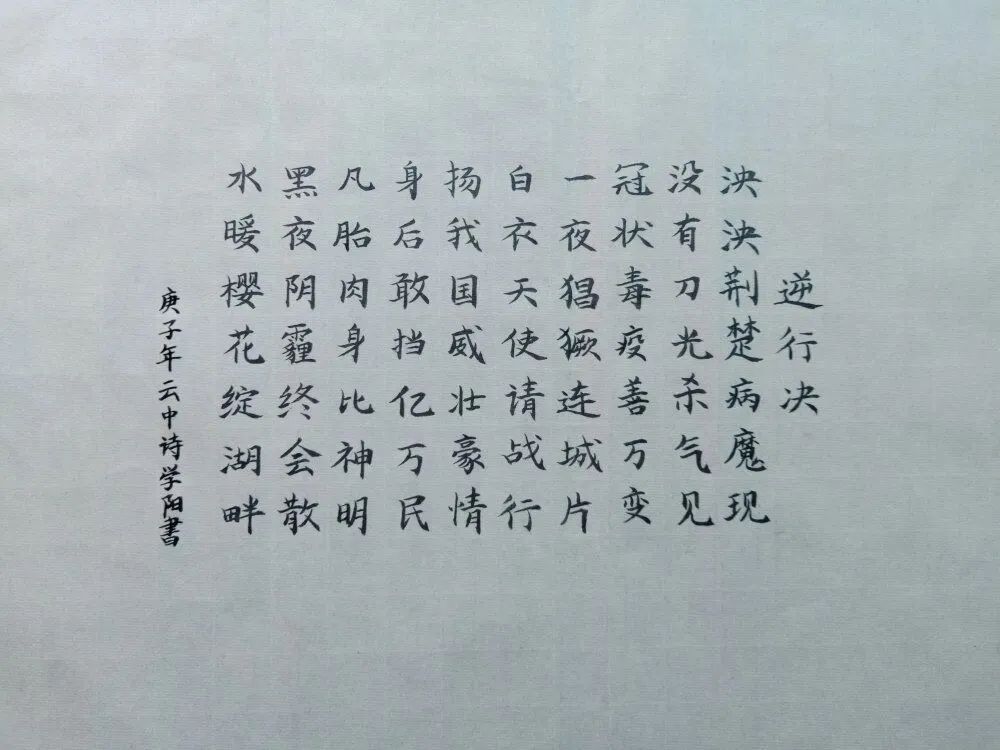 逆行决
泱泱荆楚病魔现
没有刀光杀气见
冠状毒疫善万变
一夜猖獗连城片
白衣天使请战行
扬我国威壮豪情
身后敢挡亿万民
凡胎肉身比神明
黑夜阴霾终会散
水暖樱花绽湖畔
庚子年云中诗学阳書